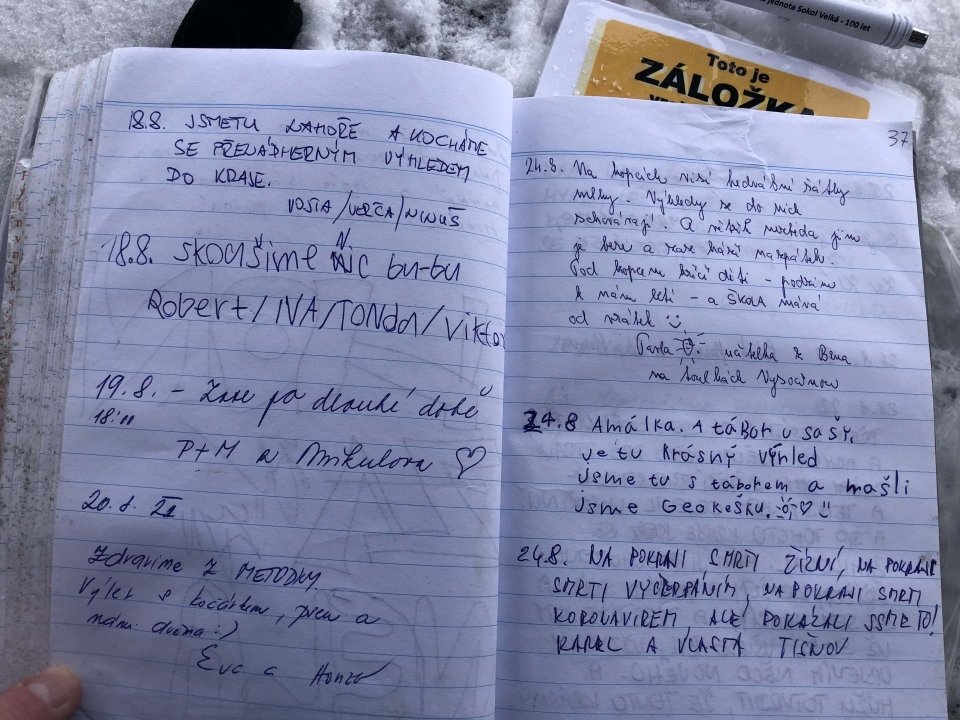 jednota Sokol Velká - 100 let
Toto je
ZÁLOŽKA
37
18.8. JSME TU NAHOŘE A KOCHÁME
SE PŘENÁDHERNÝM VÝHLEDEM
DO KRAJE.
VOJTA/VERČA/NINUŠ
18.8. SKOUŠíME NIC bu-bu
Robert/IVA/TONDA/Viktor
19.8. - Zase po dlouhé době
18:11
P+M a Mikulova ♡
20. 8. 21
Zdravíme z METODKY.
Výlet s kočárkem, psem a
námi dvěma :)
Eva a Honza
24.8. Na kopcích visí hedvábné šátky
mlhy. Výhledy se do nich
schovávají. A větřík nezbeda jim
je bere a zase hází nazpátek.
Pod kopcem křičí děti - podzim
k nám letí - a ŠKOLA mává
od vrátek
Pavla učitelka z Brna
na toulkách Vysočinou
24.8 AmáLka. A tábor u saši.
je tu krásný výhled
jsme tu s táborem a našli
jsme Geokešku. ♡
24.8. NA POKRAJI SMRTI ŽÍZNÍ, NA POKRAJI
SMRTI VYČERPÁNÍM, NA POKRAJI SMRTI
KORONAVIREM, ALE DOKÁZALI JSME TO!
KAREL A VLASTA TIŠNOV